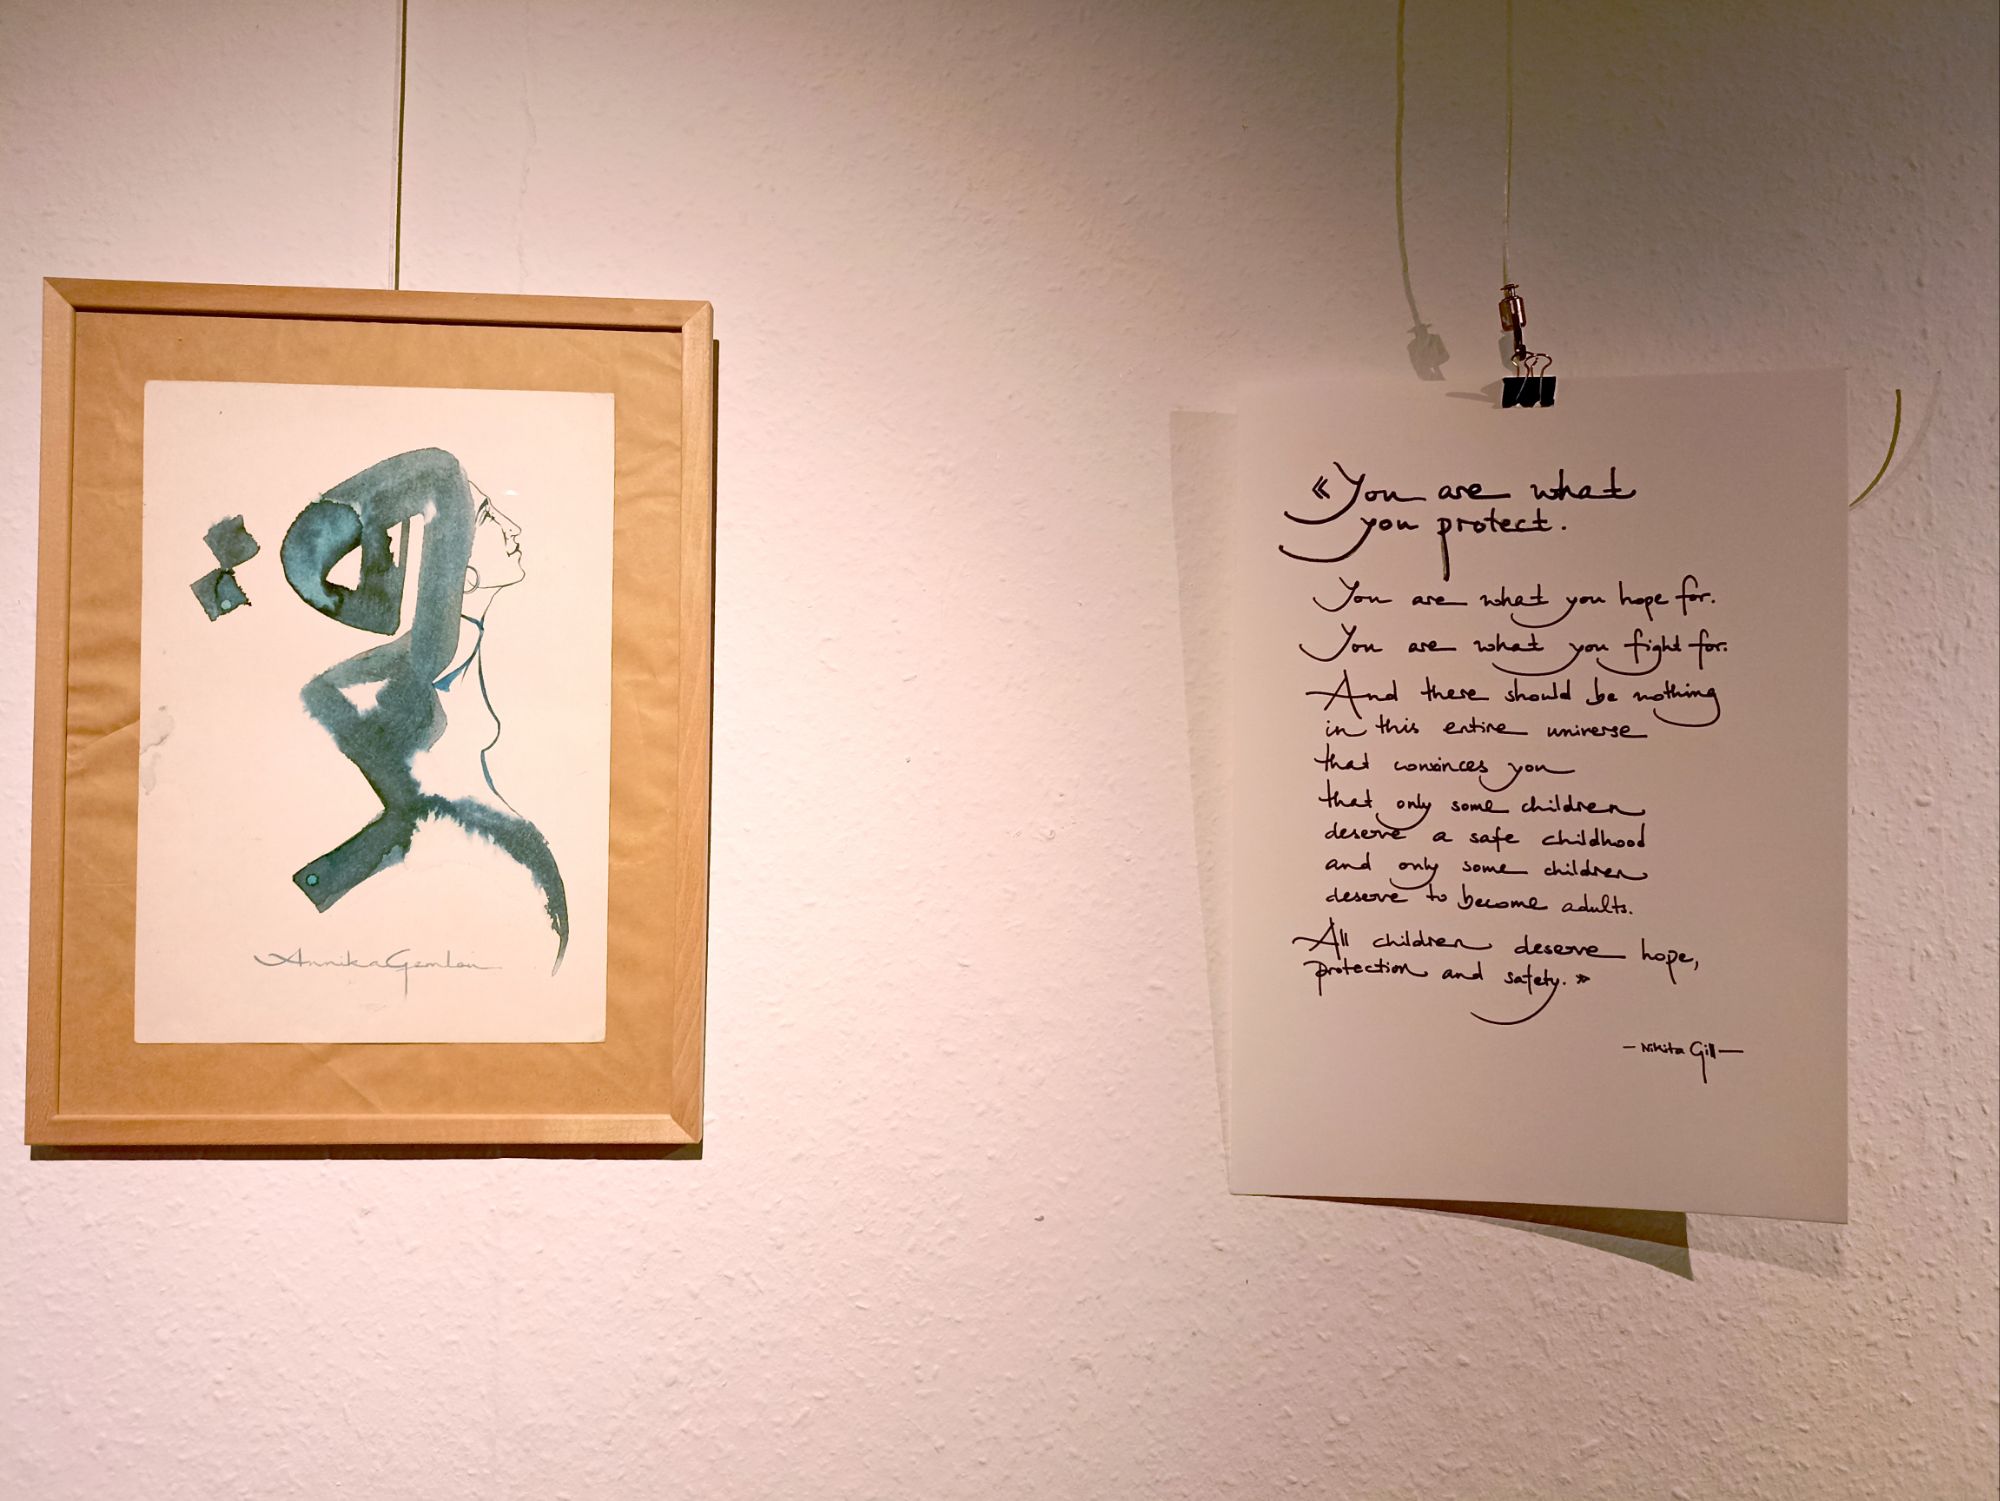 Annika Gemlau
«You are what
you protect.
You are what you hope for.
You are what you fight for.
And there should be nothing
in this entire universe
that convinces you
that only some children
deserve a safe childhood
and only some children
deserve to become adults.
All children deserve hope,
protection and safety.»
- Nikita Gill -